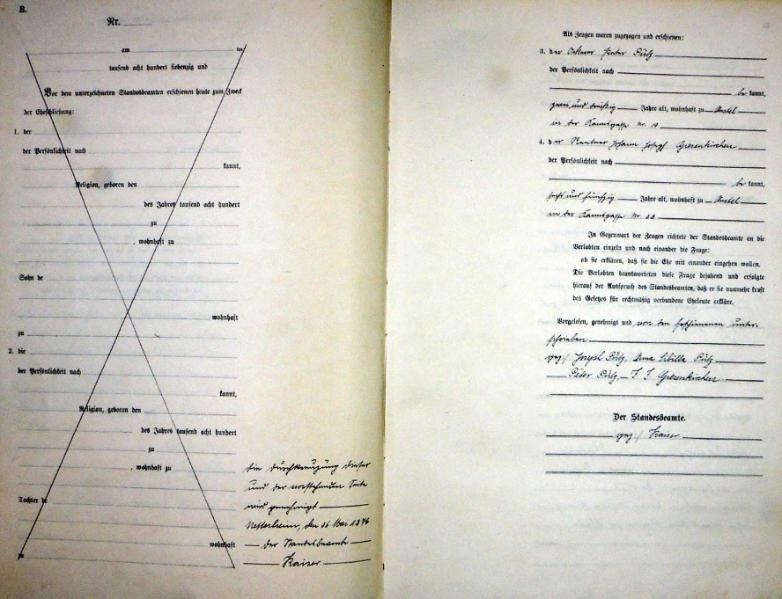 B.
Nr.
am ten
tausend acht hundert siebenzig und
Vor dem unterzeichneten Standesbeamten erschienen heute zum Zweck
der Eheschließung:
1. der
der Persönlichkeit nach
kannt,
Religion, geboren den
des Jahres tausend acht hundert
zu
, wohnhaft zu
Sohn de
wohnhaft
zu
2. die
der Persönlichkeit nach
kannt,
Religion, geboren den
des Jahres tausend acht hundert
zu
, wohnhaft zu
Tochter de
wohnhaft
zu
Die Durchkreuzung dieser
und der vorstehenden Seite
wird genehmigt
den 16 Mai 1876
der Standesbeamte
Kaiser
Als Zeugen waren zugezogen und erschienen:
3. der Peter Pütz
der Persönlichkeit nach
be kannt,
zwei und dreißig Jahre alt, wohnhaft zu
in der Nr.
4. der Rentner Johann Joseph Giesenkirchen
der Persönlichkeit nach
be kannt,
sechs und fünfzig Jahre alt, wohnhaft zu
in der Nr.
In Gegenwart der Zeugen richtete der Standesbeamte an die
Verlobten einzeln und nach einander die Frage:
ob sie erklären, daß sie die Ehe mit einander eingehen wollen.
Die Verlobten beantworteten diese Frage bejahend und erfolgte
hierauf der Ausspruch des Standesbeamten, daß er sie nunmehr kraft
des Gesetzes für rechtmäßig verbundene Eheleute erkläre.
Vorgelesen, genehmigt und von den Erschienenen unter-
schrieben
gez/ Joseph Pütz, Anna Sibilla Pütz
Peter Pütz, J. J. Giesenkirchen
Der Standesbeamte.
gez./ Kaiser